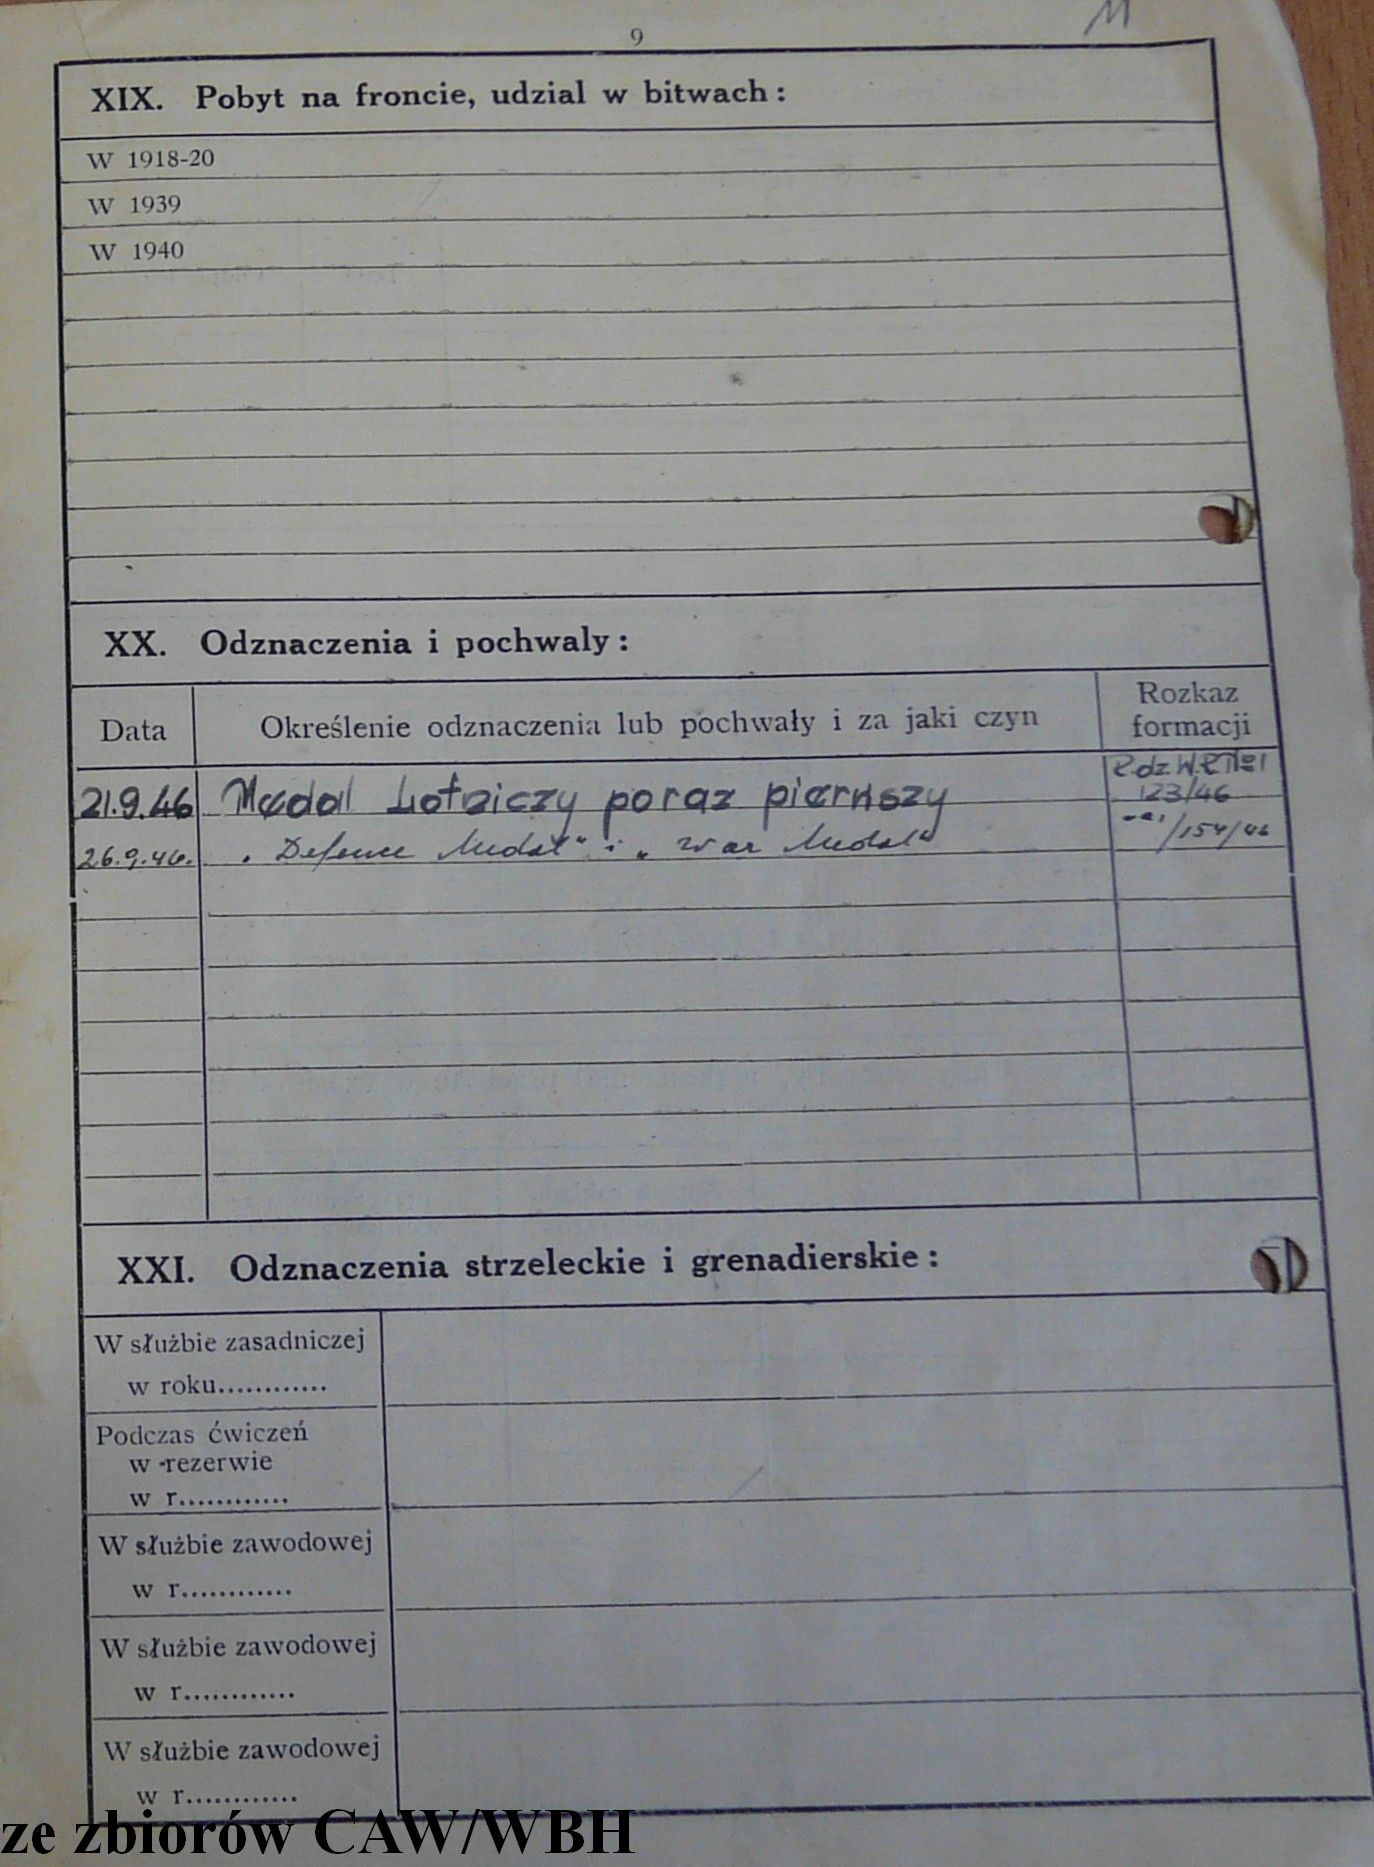 9
11
XIX. Pobyt na froncie, udzial w bitwach:
W 1918-20
W 1939
W 1940
XX. Odznaczenia i pochwaly:
Data
Określenie odznaczenia lub pochwały i za jaki czyn
Rozkaz
formacji
21.9.46 Medal Lotniczy poraz pierwszy R.dz. 123/46
26.9.46. "Defence Medal" i "War Medal" /154/46
XXI. Odznaczenia strzeleckie i grenadierskie:
W służbie zasadniczej
w roku............
Podczas ćwiczeń
w rezerwie
w r............
W służbie zawodowej
w r............
W służbie zawodowej
w r............
W służbie zawodowej
w r............
ze zbiorów CAW/WBH